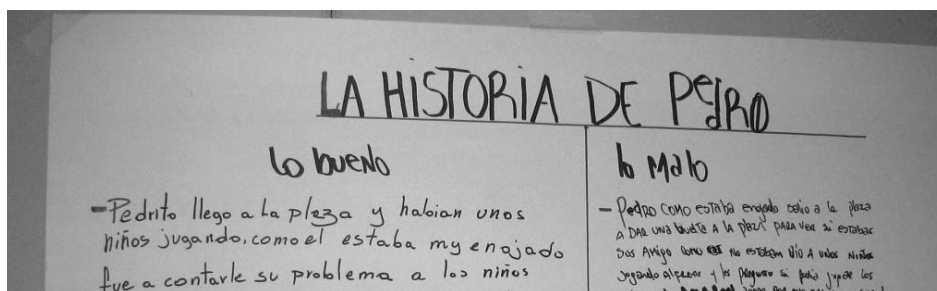 LA HISTORIA DE PedRO
lo bueno
-Pedrito llego a La pleza y habian unos
niños jugando, como el estaba my enojado
fue a contarle su problema a los niños
lo Malo
- PedRO COMO esTaba enojado salio a la plaza
A DAR UNA buelTa A LA plaza PARA Ver si estabas
sus Amigo como no esTabam Vio A unos Niños
jugando al y les pregunto si podia jugar los